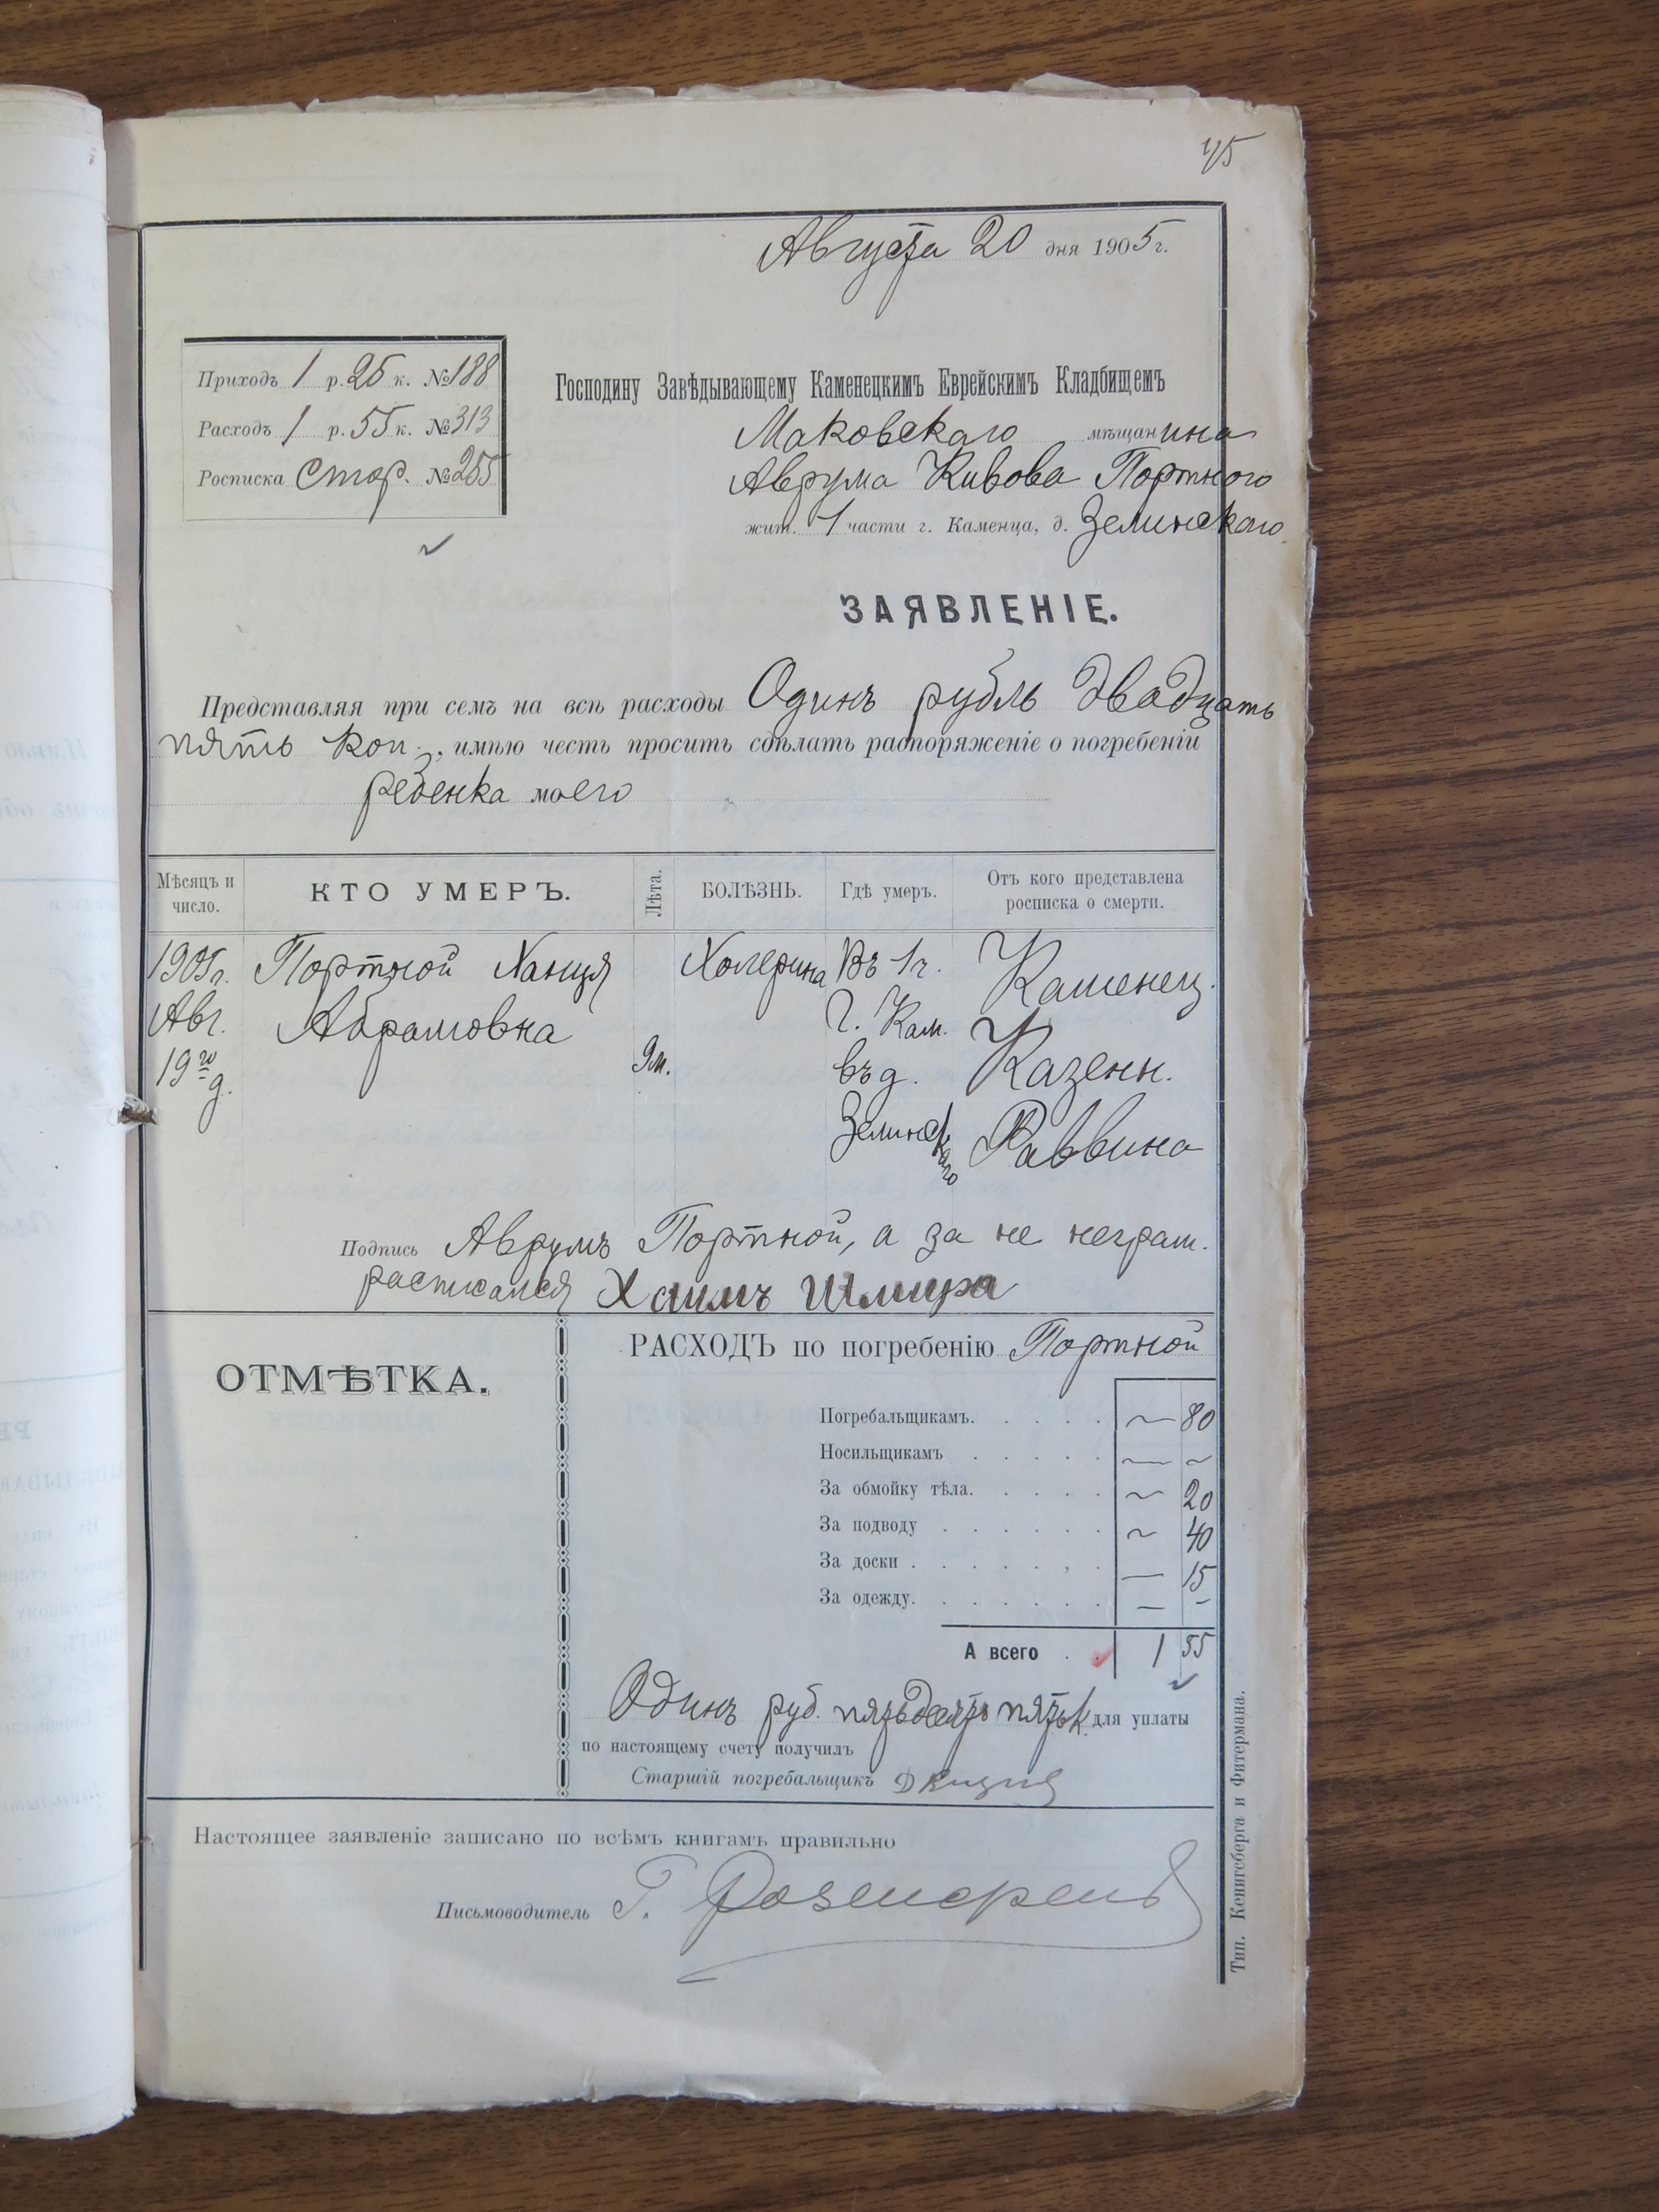 45
Августа 20 дня 1905 г.
Приходъ 1 р. 25 к. № 188
Расходъ 1 р. 55 к. № 313
Росписка Стар. № 255
Господину Завѣдывающему Каменецкимъ Еврейскимъ Кладбищемъ
Маковскаго мѣщанина
Аврума Кивова Портного
жит. 1 части г. Каменца, д. Зелинскаго
ЗАЯВЛЕНІЕ.
Представляя при семъ на всѣ расходы Одинъ рубль двадцать
пять коп., имѣю честь просить сдѣлать распоряженіе о погребеніи
ребенка моего
Мѣсяцъ и число. КТО УМЕРЪ. Лѣта. БОЛѢЗНЬ. Гдѣ умеръ. Отъ кого представлена росписка о смерти.
1905 г. Портной Ханця Холерина Въ 1 ч. Каменец.
Авг. Абрамовна Г. Кам. Казенн.
19го д. 9 м. въ д. Раввина
Зелинскаго
Подпись Аврумъ Портной, а за не неграм.
расписался Хаимъ Шмира
ОТМѢТКА.
РАСХОДЪ по погребенію Портной
Погребальщикамъ. . . . . ~ 80
Носильщикамъ . . . . . ~ ~
За обмойку тѣла. . . . . ~ 20
За подводу . . . . . . ~ 40
За доски . . . . . . . — 15
За одежду. . . . . . . — –
А всего . . 1 55
Одинъ руб. пятьдесятъ пять к. для уплаты
по настоящему счету получилъ
Старшій погребальщикъ Д
Настоящее заявленіе записано по всѣмъ книгамъ правильно
Письмоводитель Г.
Тип. Кенигсберга и Фитермана.